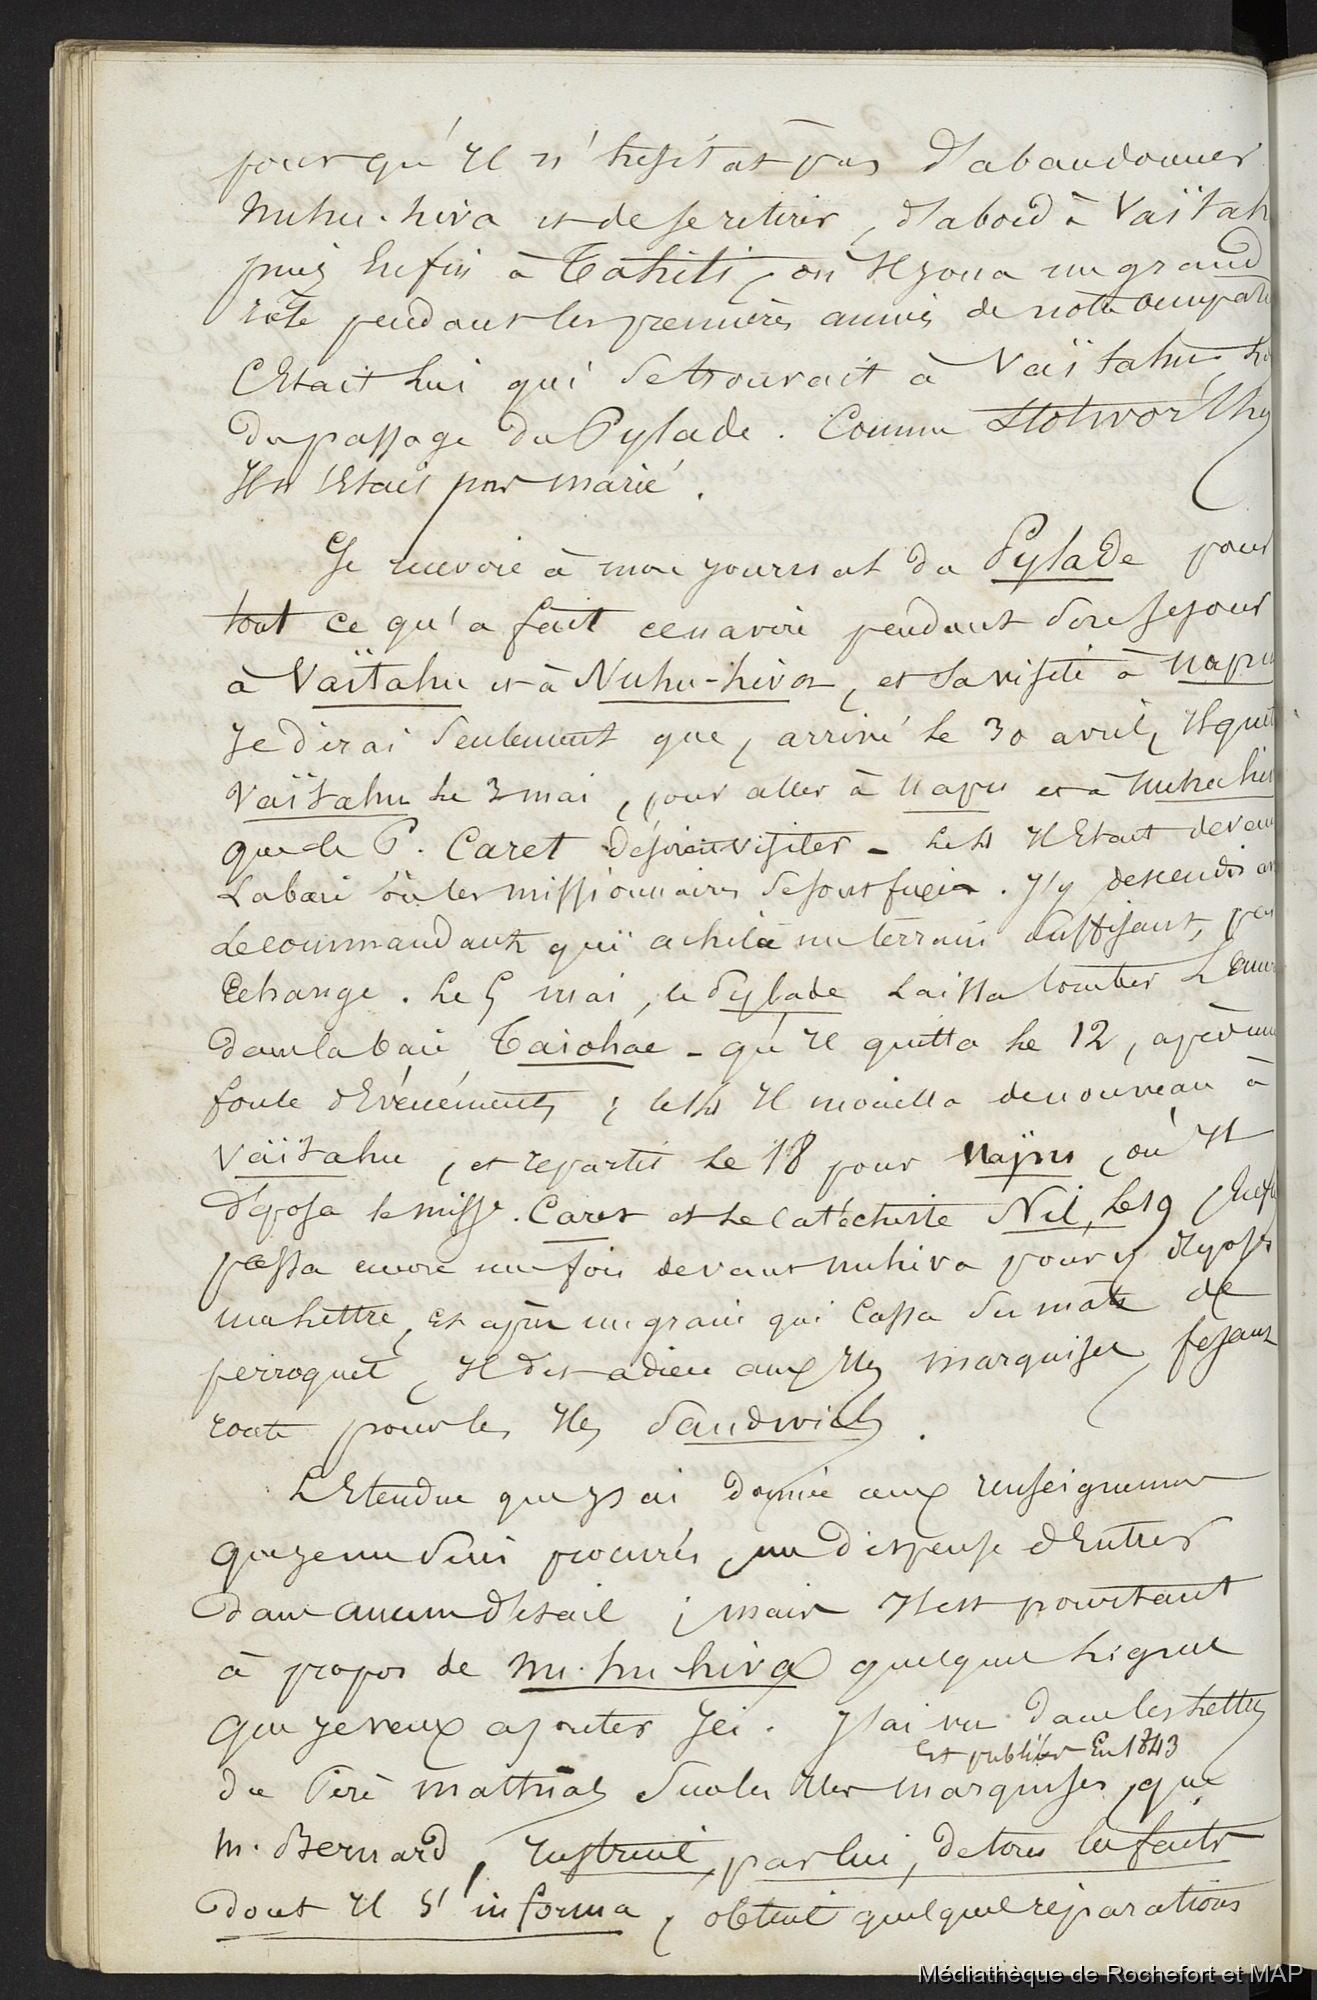 pour qu'il n'hesitat pas d'abandonner
Nuhu-hiva et de se retirer, d'abord à Vaïtah
puis Enfin à Tahiti, où Il joua un grand
rôle pendant les premières années de notre occupati
C'Etait lui qui se trouvait à Vaïtahu, 
du passage du Pylade. Comme Stolworthy
Il n'Etait pas marié.
Je renvoie à mon journal du Pylade pour
tout ce qu'a fait ce navire pendant son sejour
à Vaïtahu et à Nuhu-hiva, et sa visite à Uapu
Je dirai seulement que, arrivé le 30 avril, Il quit
Vaïtahu le 3 mai, pour aller à Uapu et à Nuhu hiv
que le P. Caret désirait visiter - Le 4 Il Etait devan
La baie où les missionnaires se sont fixés. J'y descendis av
Le commandant qui acheta un terrain suffisant, par
Echange. Le 5 mai, le Pylade laissa tomber L'ancr
dans la baie Taiohae - qu'Il quitta le 12, après une
foule d'Evénéments; le 14 Il mouilla de nouveau à
Vaïtahu, et repartit le 18 pour Uapu, où Il
déposa le miss. Caret et le Catéchiste Nil, Le 19, Enfi
passa encore une fois devant nuhiva pour y déposer
une lettre, et après un grain qui Cassa son mat de
perroquet, Il dit adieu aux Iles marquises, fesant
route pour les Iles Sandwich.
L'Etendue que j'ai donnée aux renseignemens
que je me suis procurés, me dispense d'Entrer
dans aucun détail; mais Il est pourtant
à propos de Nu-hu-hiva quelques lignes
que je veux ajouter Ici. J'ai vu dans les lettres
Et publiées En 1843
du Père mathias sur les Iles marquises, que
M. Bernard, Instruit par lui, de tous les faits
dont Il s'informa, obtint quelques réparations
Médiathèque de Rochefort et MAP